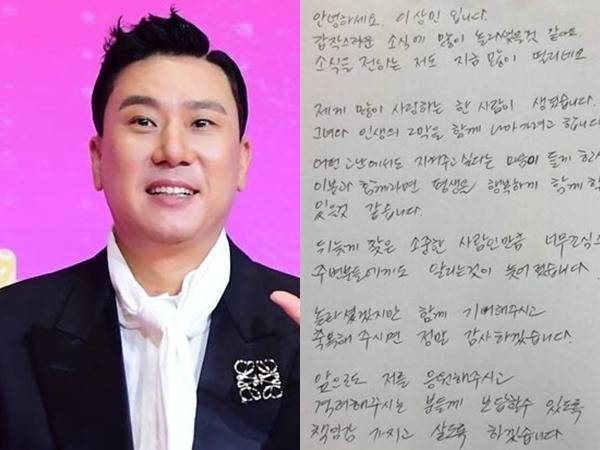 안녕하세요. 이상민 입니다.
갑작스러운 소식에 많이 놀라셨을것 같아요.
소식을 전하는 저도 지금 많이 떨리네요.
제게 많이 사랑하는 한 사람이 생겼습니다.
그녀와 인생의 2막을 함께 나아가려고 합니다
어떤 고난에서도 지켜주고 싶다는 마음이 들게 하
이분과 함께라면 평생을 행복하게 함께
있을것 같습니다.
뒤늦게 찾은 소중한 사람인만큼 너무
주변분들에게도 알리는것이 늦어졌습니다
놀라셨겠지만 함께 기뻐해주시고
축복해 주시면 정말 감사하겠습니다.
앞으로도 저를 응원해주시고
격려해주시는 분들께 보답할수 있도록
책임감 가지고 살도록 하겠습니다